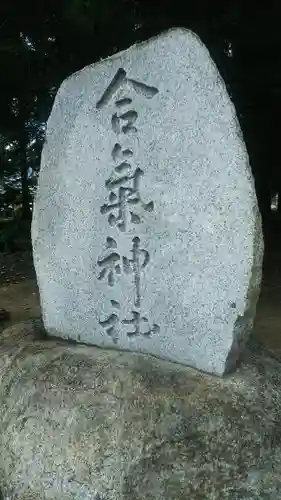 合氣神社